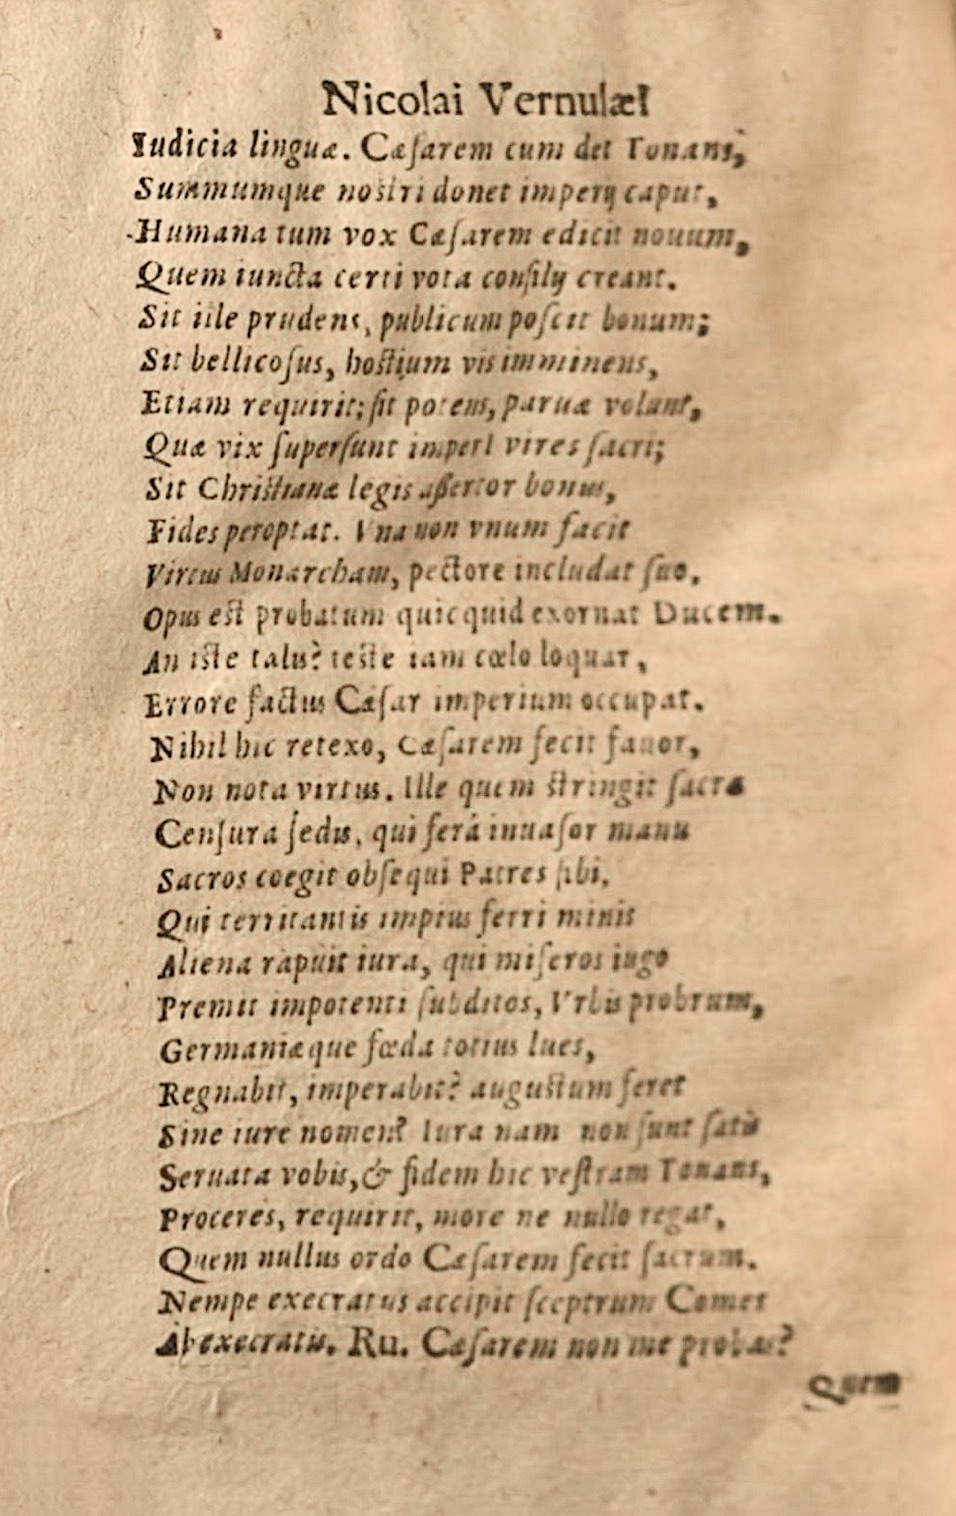 Nicolai Vernulæi
Iudicia linguæ. Cæſarem cum det Tonans,
Summumque nostri donet imperij caput,
Humana tum vox Cæſarem edicit nouum,
Quem iuncta certi vota conſilij creant.
Sit ille prudens, publicum poſcit bonum;
Sit bellicoſus, hoſtium vis imminens,
Etiam requirit; ſit potens, paruæ volunt,
Quæ vix ſuperſunt imperI vires ſacri;
Sit Chriſtianæ legis aſſertor bonus,
Fides peroptat. Vna non vnum facit
Virtus Monarcham, pectore includat ſuo,
Opus eſt probatum quicquid exornat Ducem.
An iſte talis? teſte iam cœlo loquar,
Errore factus Cæſar imperium occupat.
Nihil hic retexo, Cæſarem fecit fauor,
Non nota virtus. Ille quem ſtringit ſacræ
Cenſura ſedis, qui ferâ inuaſor manu
Sacros coegit obſequi Patres ſibi,
Qui territantis impius ferri minis
Aliena rapuit iura, qui miſeros iugo
Premit impotenti ſubditos, Vrbis probrum,
Germaniæque fœda totius lues,
Regnabit, imperabit? auguſtum feret
Sine iure nomen? Iura nam non ſunt ſatis
Seruata vobis, & fidem hic veſtram Tonans,
Proceres, requirit, more ne nullo regat,
Quem nullus ordo Cæſarem fecit ſacrum.
Nempe execratus accipit ſceptrum Comes
Ab execratis. Ru. Cæſarem non me probas?
Quem